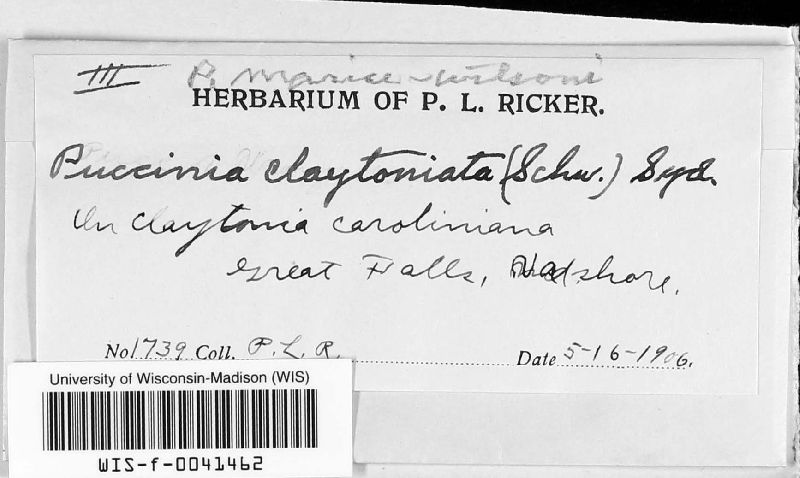 III P. mariae-wilsoni
HERBARIUM OF P. L. RICKER.
Puccinia claytoniata (Schw.) Syd.
On Claytonia caroliniana
Great Falls, shore.
No 1739 Coll. P. L. R. Date 5-16-1906.
University of Wisconsin-Madison (WIS)
WIS-f-0041462